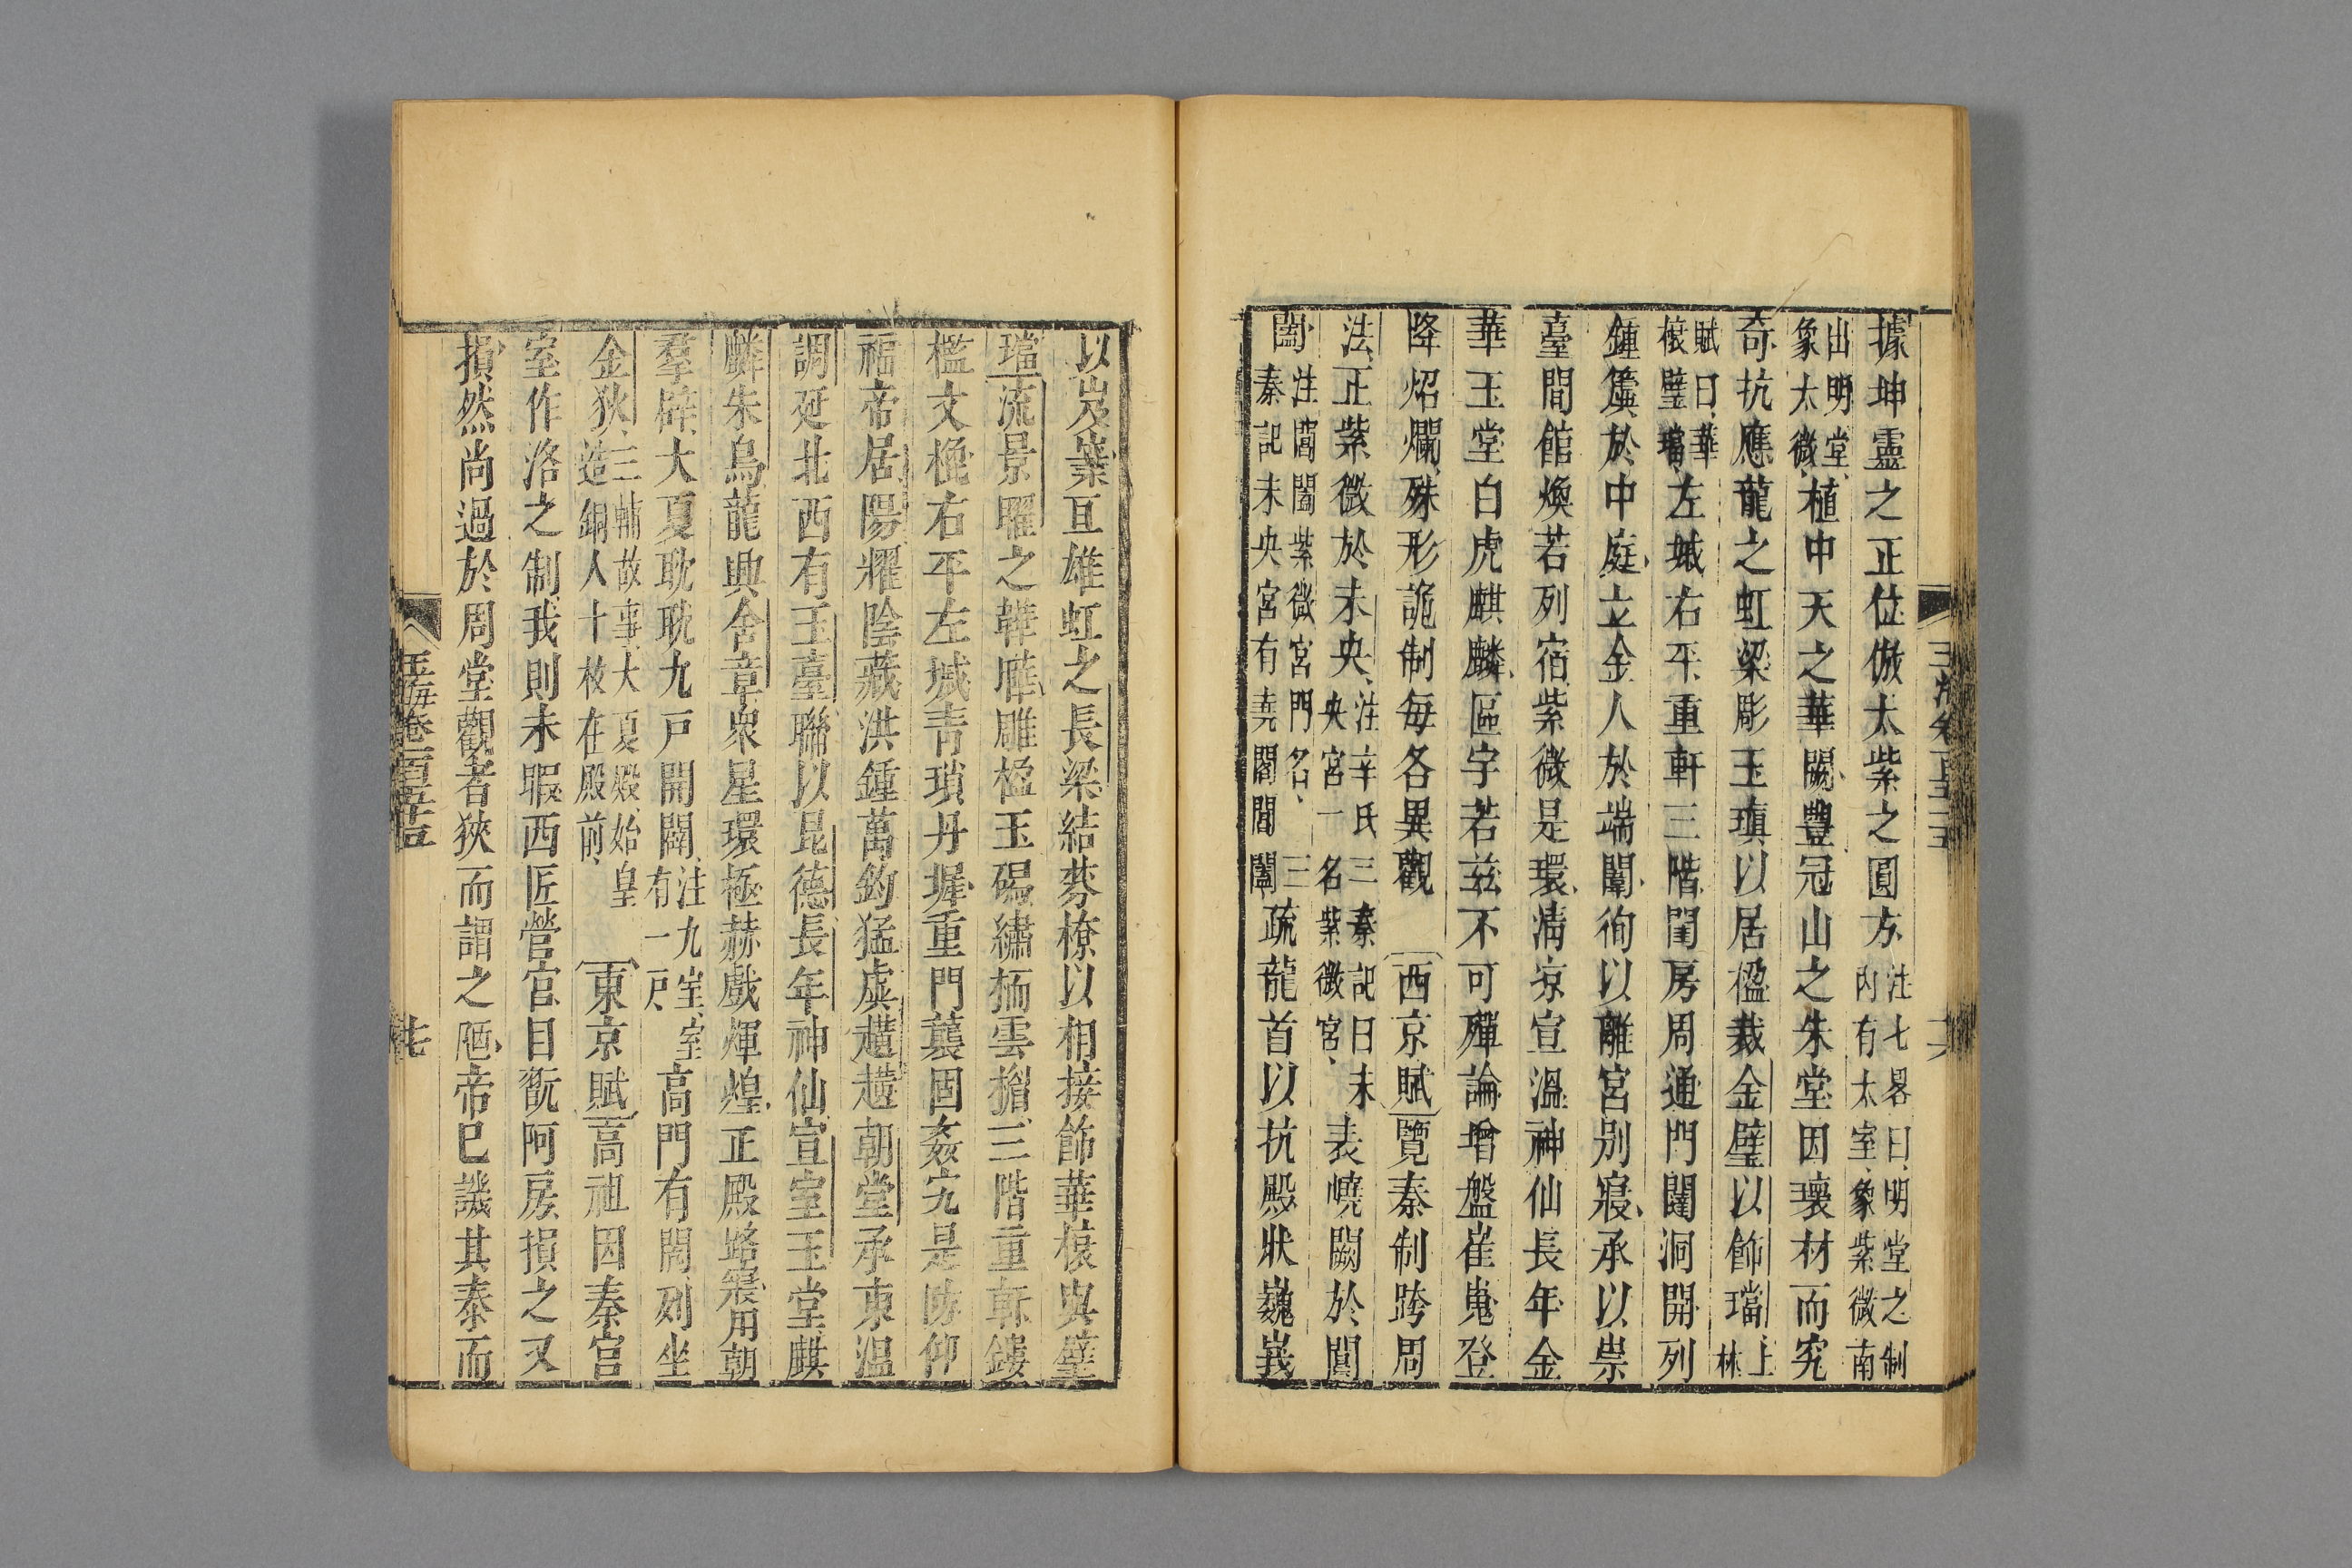 據坤靈之正位倣太紫之圓方注七畧曰明堂之制内有太室象紫微南
出明堂象太微植中天之華闕豐冠山之朱堂因瓌材而究
奇抗應龍之虹梁彫玉瑱以居楹裁金璧以飾璫上林
賦曰華榱璧璫左墄右平重軒三階閨房周通門闥洞開列
鍾簴於中庭立金人於端闈徇以離宮別寢承以崇
臺間館煥若列宿紫微是環清凉宣溫神仙長年金
華玉堂白虎麒麟區宇若茲不可殫論增盤崔嵬登
降炤爛殊形詭制每各異觀 西京賦覽秦制跨周
法正紫微於未央注辛氏三秦記曰未央宮一名紫微宮表嶢闕於閶
闔注閶闔紫微宮門名三秦記未央宮有堯閣閶闔疏龍首以抗殿狀巍峩
玉海卷一百五十五
以岌嶪亙雄虹之長梁結棼橑以相接飾華榱與璧
璫流景曜之韡曄雕楹玉磶繡栭雲楣三階重軒鏤
檻文㮰右平左墄青瑣丹墀重門襲固姦宄是防仰
福帝居陽耀陰藏洪鍾萬鈞猛虡趪趪朝堂承東溫
調延北西有玉臺聯以昆德長年神仙宣室玉堂麒
麟朱鳥龍興含章衆星環極赫戲煇煌正殿路寢用朝
羣辟大夏耽耽九戸開闢注九室室有一戸高門有閌列坐
金狄三輔故事大夏殿始皇造銅人十枚在殿前 東京賦高祖因秦宫
室作洛之制我則未暇西匠營宫目翫阿房損之又
損然尚過於周堂觀者狹而謂之陋帝巳譏其泰而
玉海卷一百五十五 七